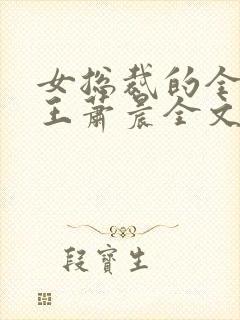 女总裁的全
王萧晨全文
段宝生